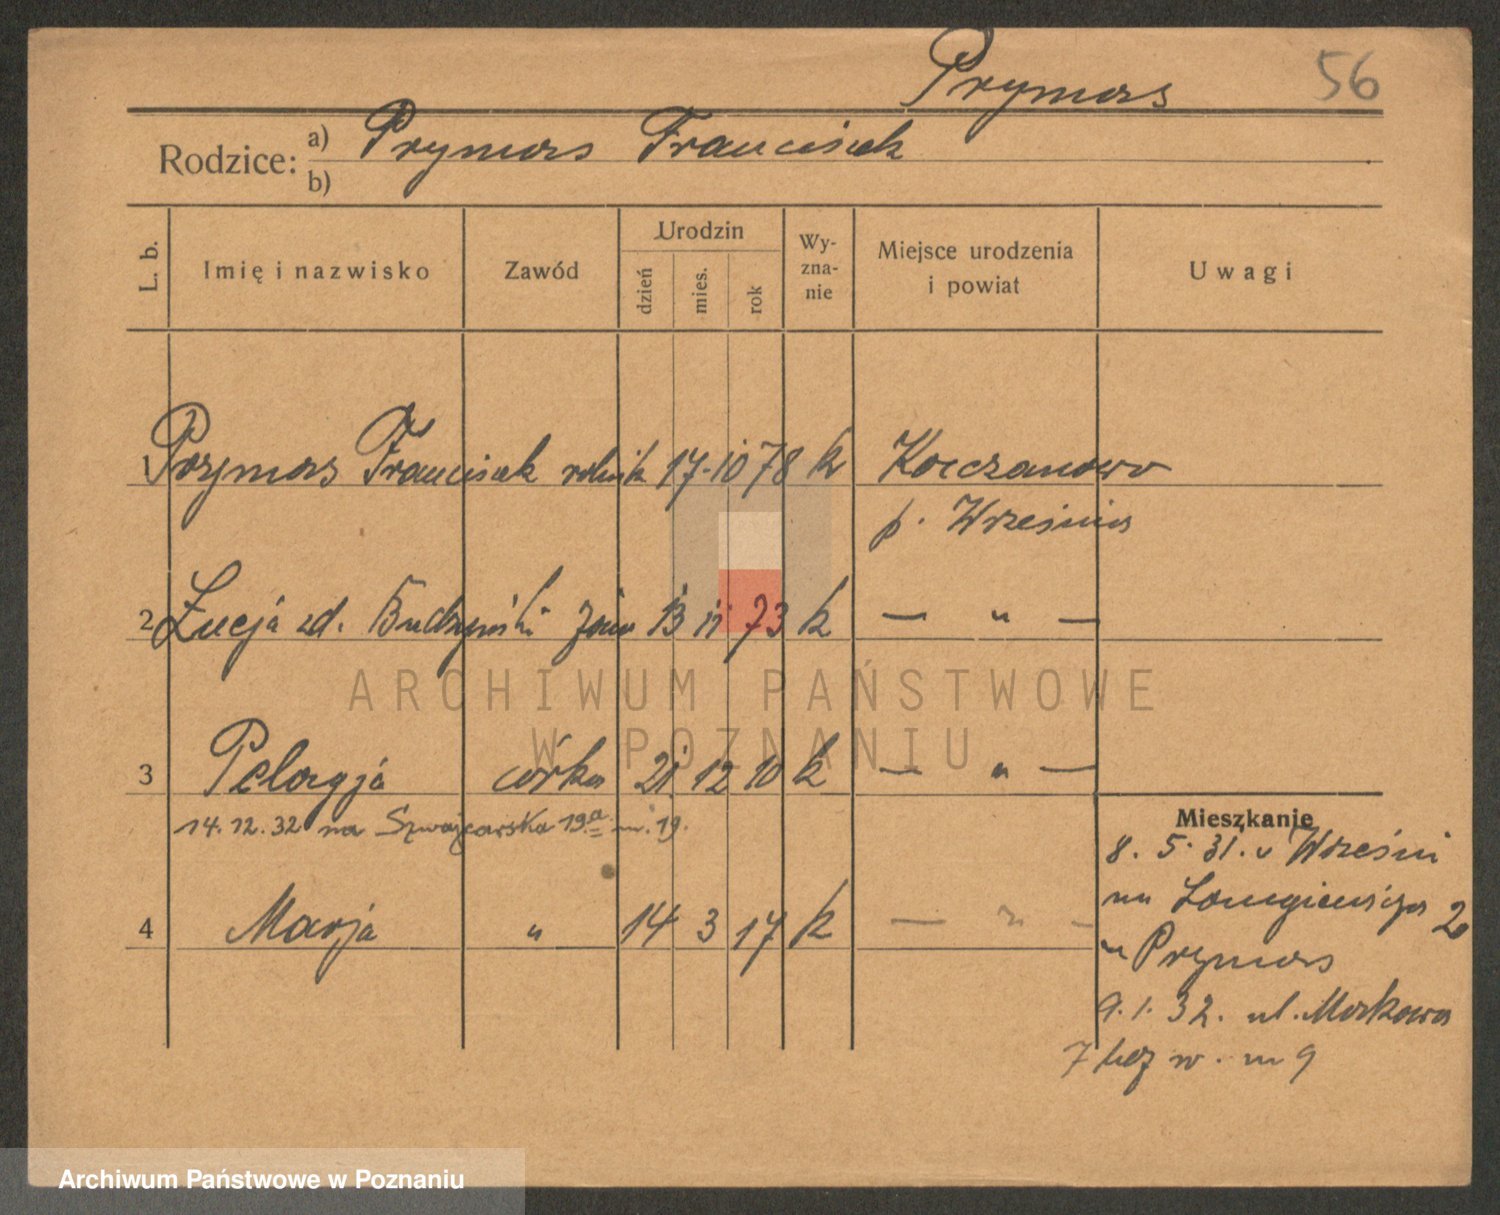 Prymas 56
Rodzice: a) Prymas Franciszek
b)
L. b. Imię i nazwisko Zawód Urodzin dzień mies. rok Wy- zna- nie Miejsce urodzenia i powiat Uwagi
1 Prymas Franciszek rolnik 17 10 78 k Kaczanowo
p. Września
2 Łucja zd. Budzyński żona 13 11 73 k — " —
ARCHIWUM PAŃSTWOWE
W POZNANIU
3 Pelagja córka 21 12 10 k — " —
14.12.32 na Szwajcarska 19a m. 19.
4 Marja " 14 3 17 k — " —
Mieszkanie
8. 5. 31. z Wrześni
na 2
u Prymas
9. 1. 32. ul.
7 m 9
Archiwum Państwowe w Poznaniu